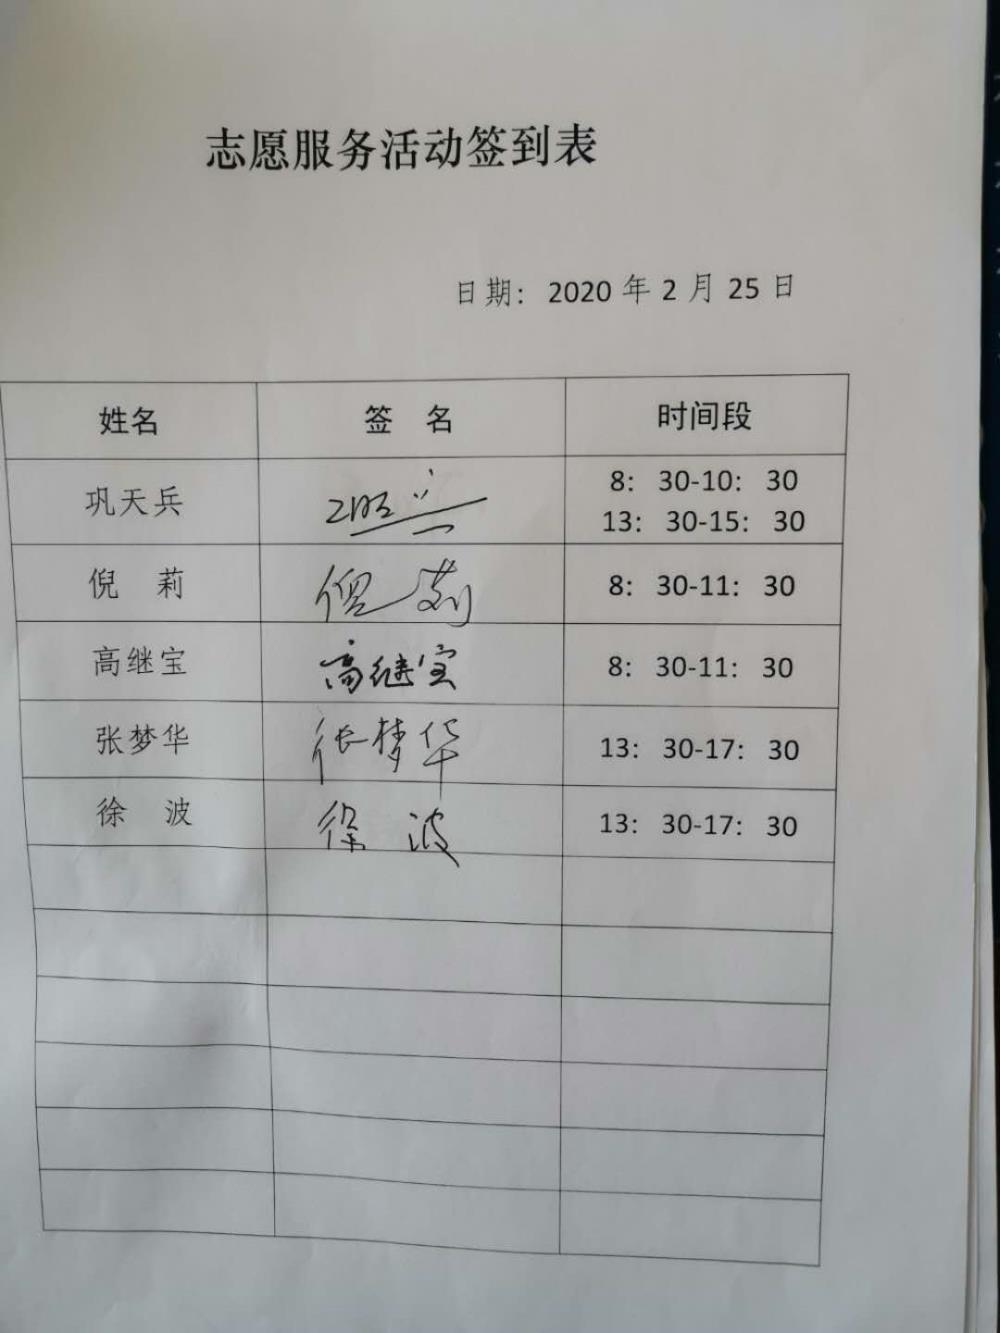 志愿服务活动签到表
日期：2020 年 2 月 25 日
姓名 签 名 时间段
巩天兵 8：30-10：30
13：30-15：30
倪 莉 倪莉 8：30-11：30
高继宝 高继宝 8：30-11：30
张梦华 张梦华 13：30-17：30
徐 波 徐 波 13：30-17：30